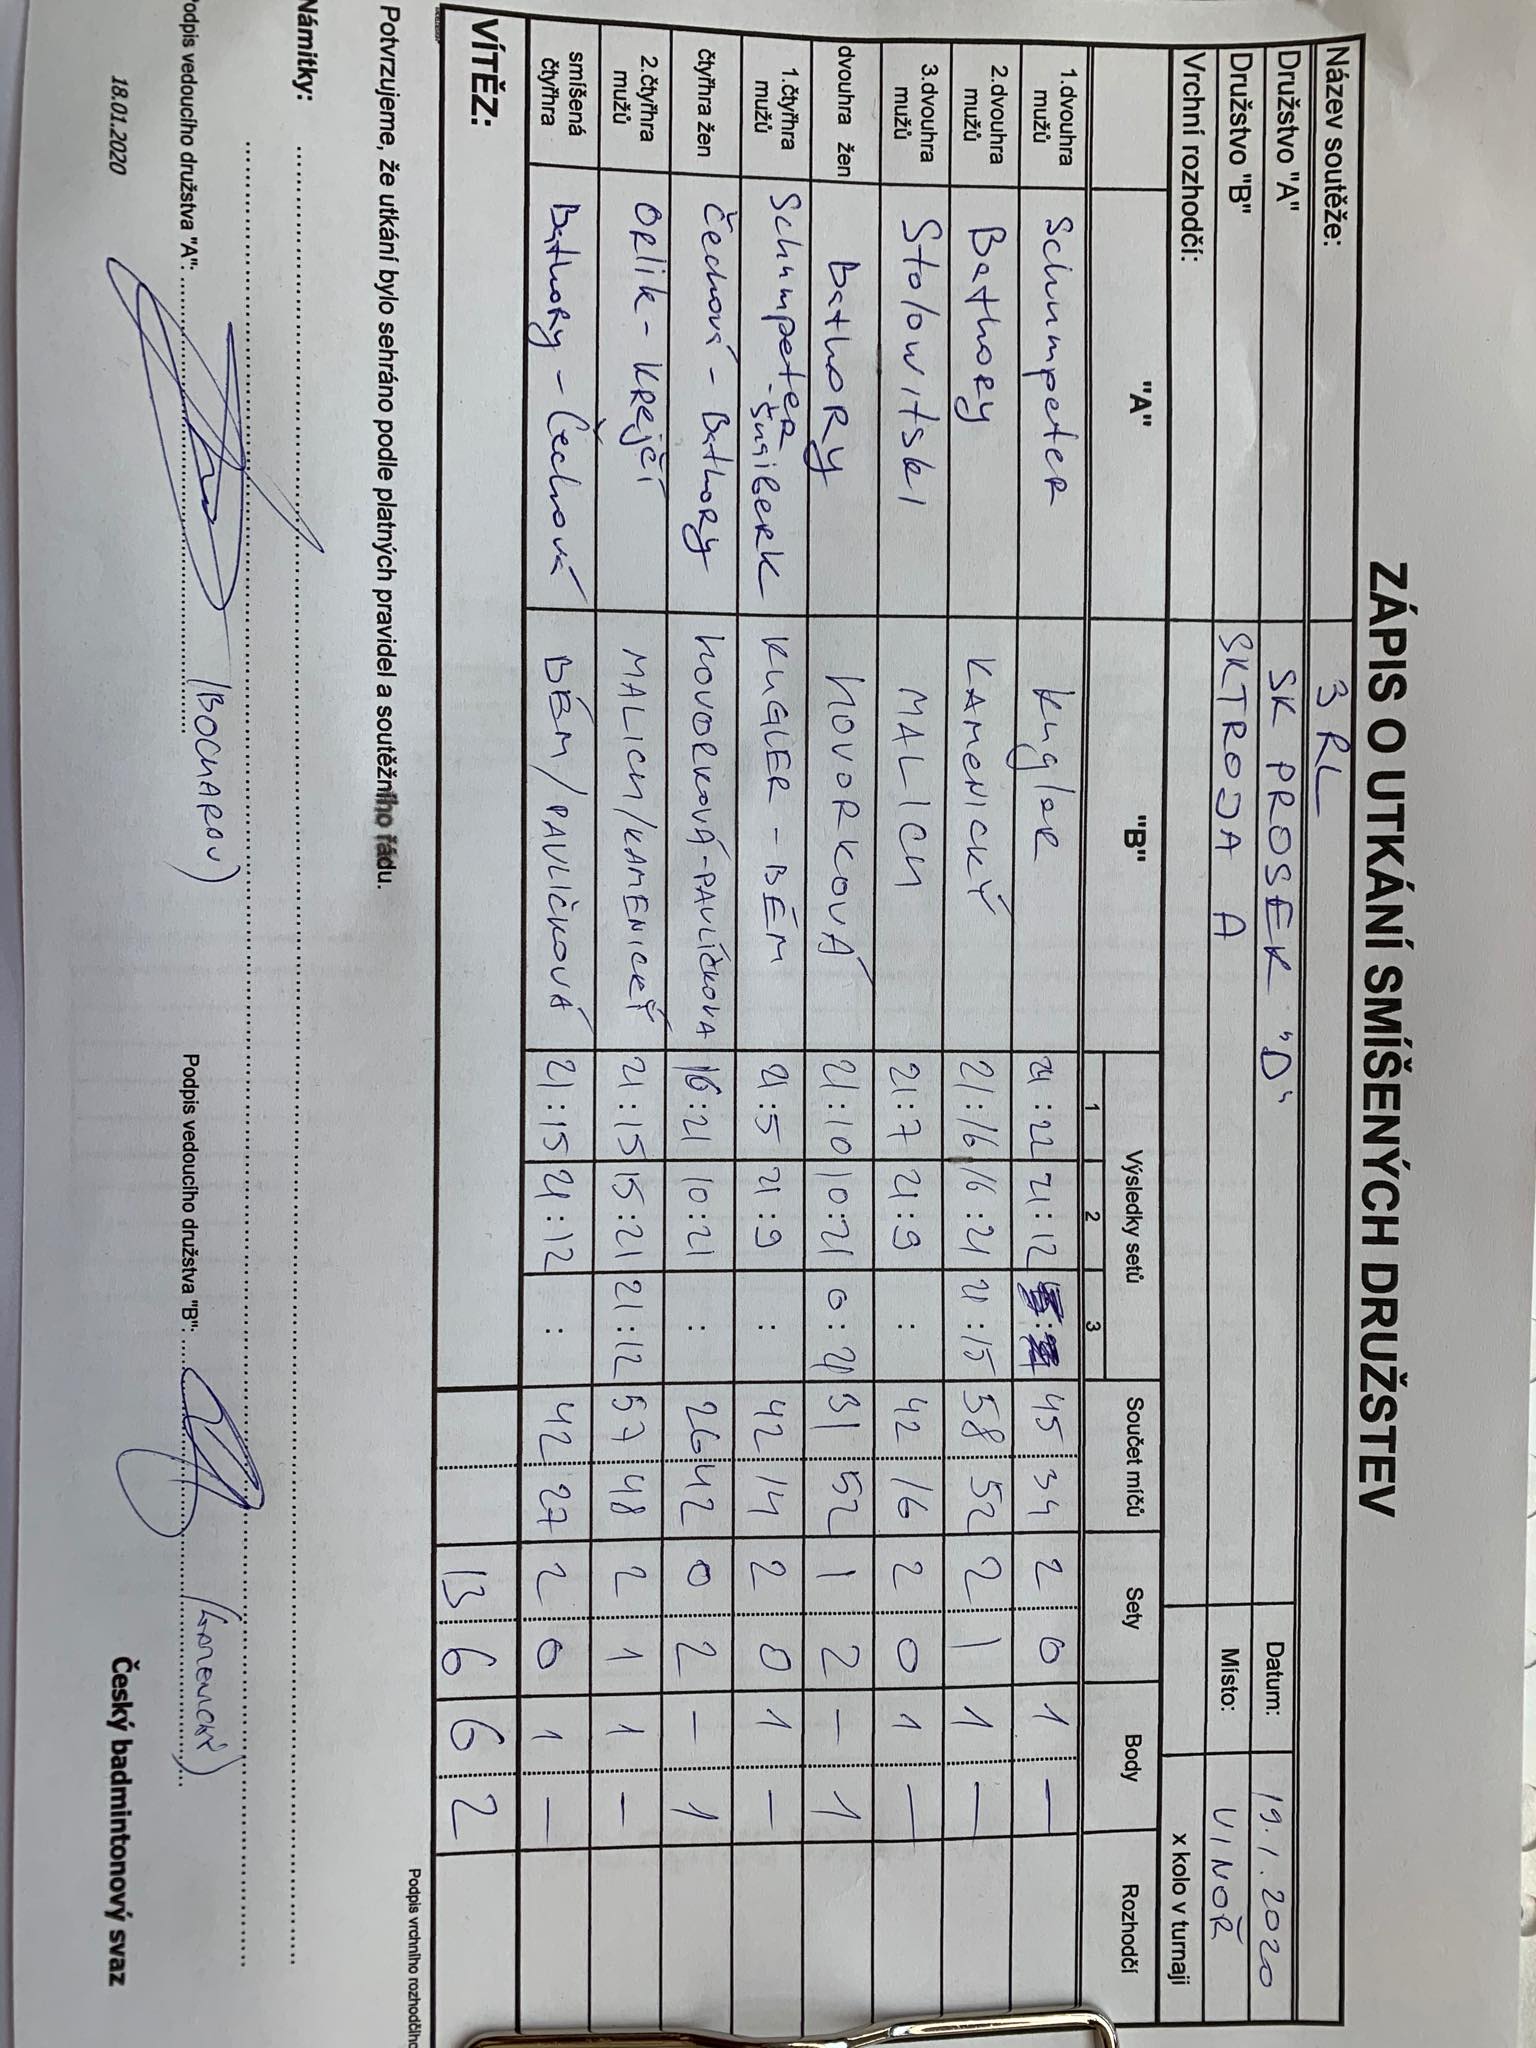 ZÁPIS O UTKÁNÍ SMÍŠENÝCH DRUŽSTEV
Název soutěže: 3 RL
Družstvo "A" SK PROSEK "D" Datum: 19.1.2020
Družstvo "B" SK TROJA A Místo: VINOŘ
Vrchní rozhodčí: x kolo v turnaji
"A" "B" Výsledky setů Součet míčů Sety Body Rozhodčí
1 2 3
1.dvouhra mužů Schumpeter Kugler 24:22 21:12 45 34 2 0 1 —
2.dvouhra mužů Bathory KAMENICKÝ 21:16 16:21 21:15 58 52 2 1 1 —
3.dvouhra mužů Stolowitski MALICH 21:7 21:9 : 42 16 2 0 1 —
dvouhra žen Bathory HOVORKOVÁ 21:10 10:21 0:21 31 52 1 2 — 1
1.čtyřhra mužů Schumpeter - Šnaiberk KUGLER - BÉM 21:5 21:9 : 42 14 2 0 1 —
čtyřhra žen Čechová - Bathory HOVORKOVÁ-PAVLÍČKOVA 16:21 10:21 : 26 42 0 2 — 1
2.čtyřhra mužů Orlik - Krejčí MALICH/KAMENICKÝ 21:15 15:21 21:12 57 48 2 1 1 —
smíšená čtyřhra Bathory - Čechová BÉM/PAVLÍČKOVÁ 21:15 21:12 : 42 27 2 0 1 —
VÍTĚZ: 13 6 6 2
Potvrzujeme, že utkání bylo sehráno podle platných pravidel a soutěžního řádu.
Podpis vrchního rozhodčího
Námitky:
Podpis vedoucího družstva "A": (BOCHAROV) Podpis vedoucího družstva "B": (KAMENICKÝ)
18.01.2020 Český badmintonový svaz